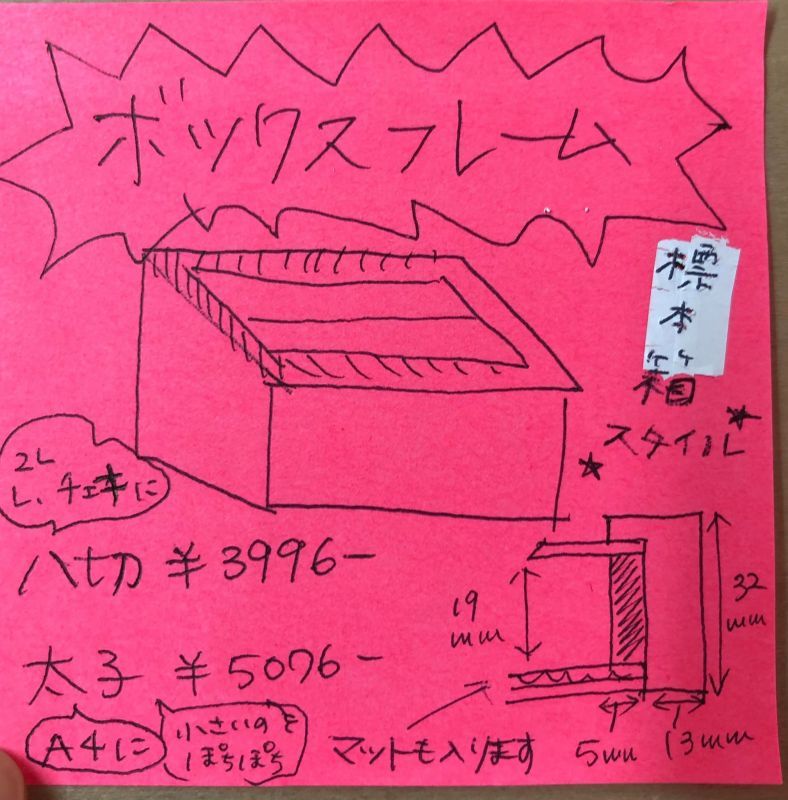 ボックスフレーム
標
本
箱
スタイル
2L
L、チェキに
八切 ¥3996-
太子 ¥5076-
A4に
小さいのを
ぽちぽち
マットも入ります
19
mm
32
mm
5mm
13mm